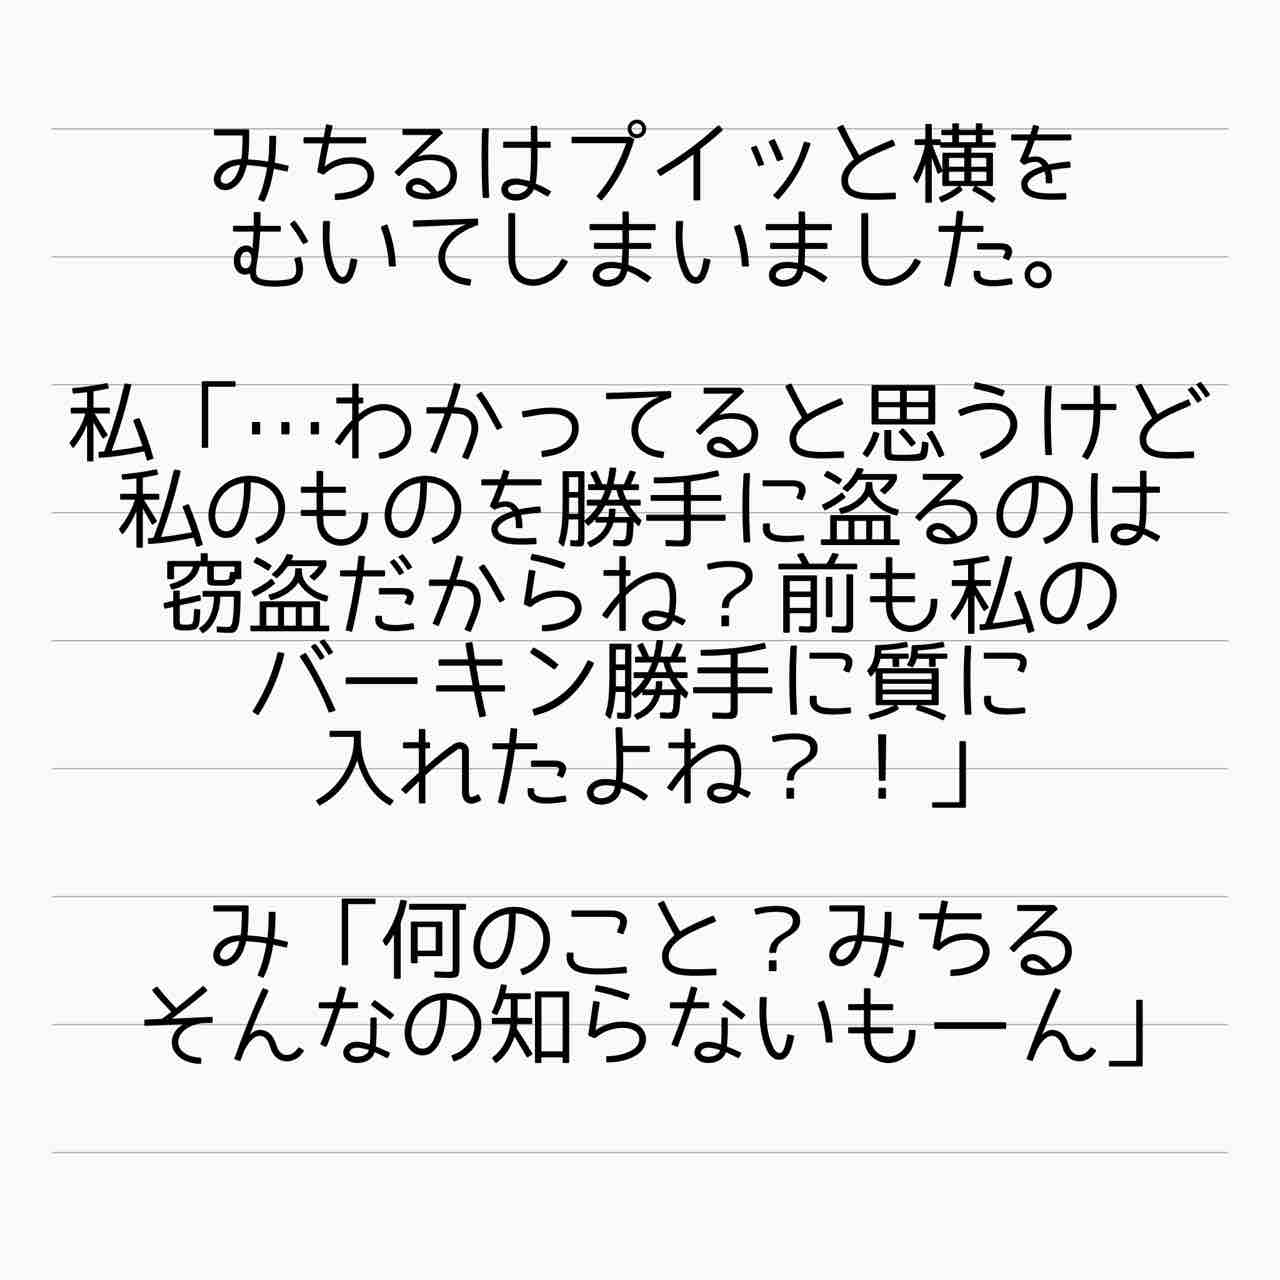 みちるはプイッと横を
むいてしまいました。
私「…わかってると思うけど
私のものを勝手に盗るのは
窃盗だからね？前も私の
バーキン勝手に質に
入れたよね？！」
み「何のこと？みちる
そんなの知らないもーん」